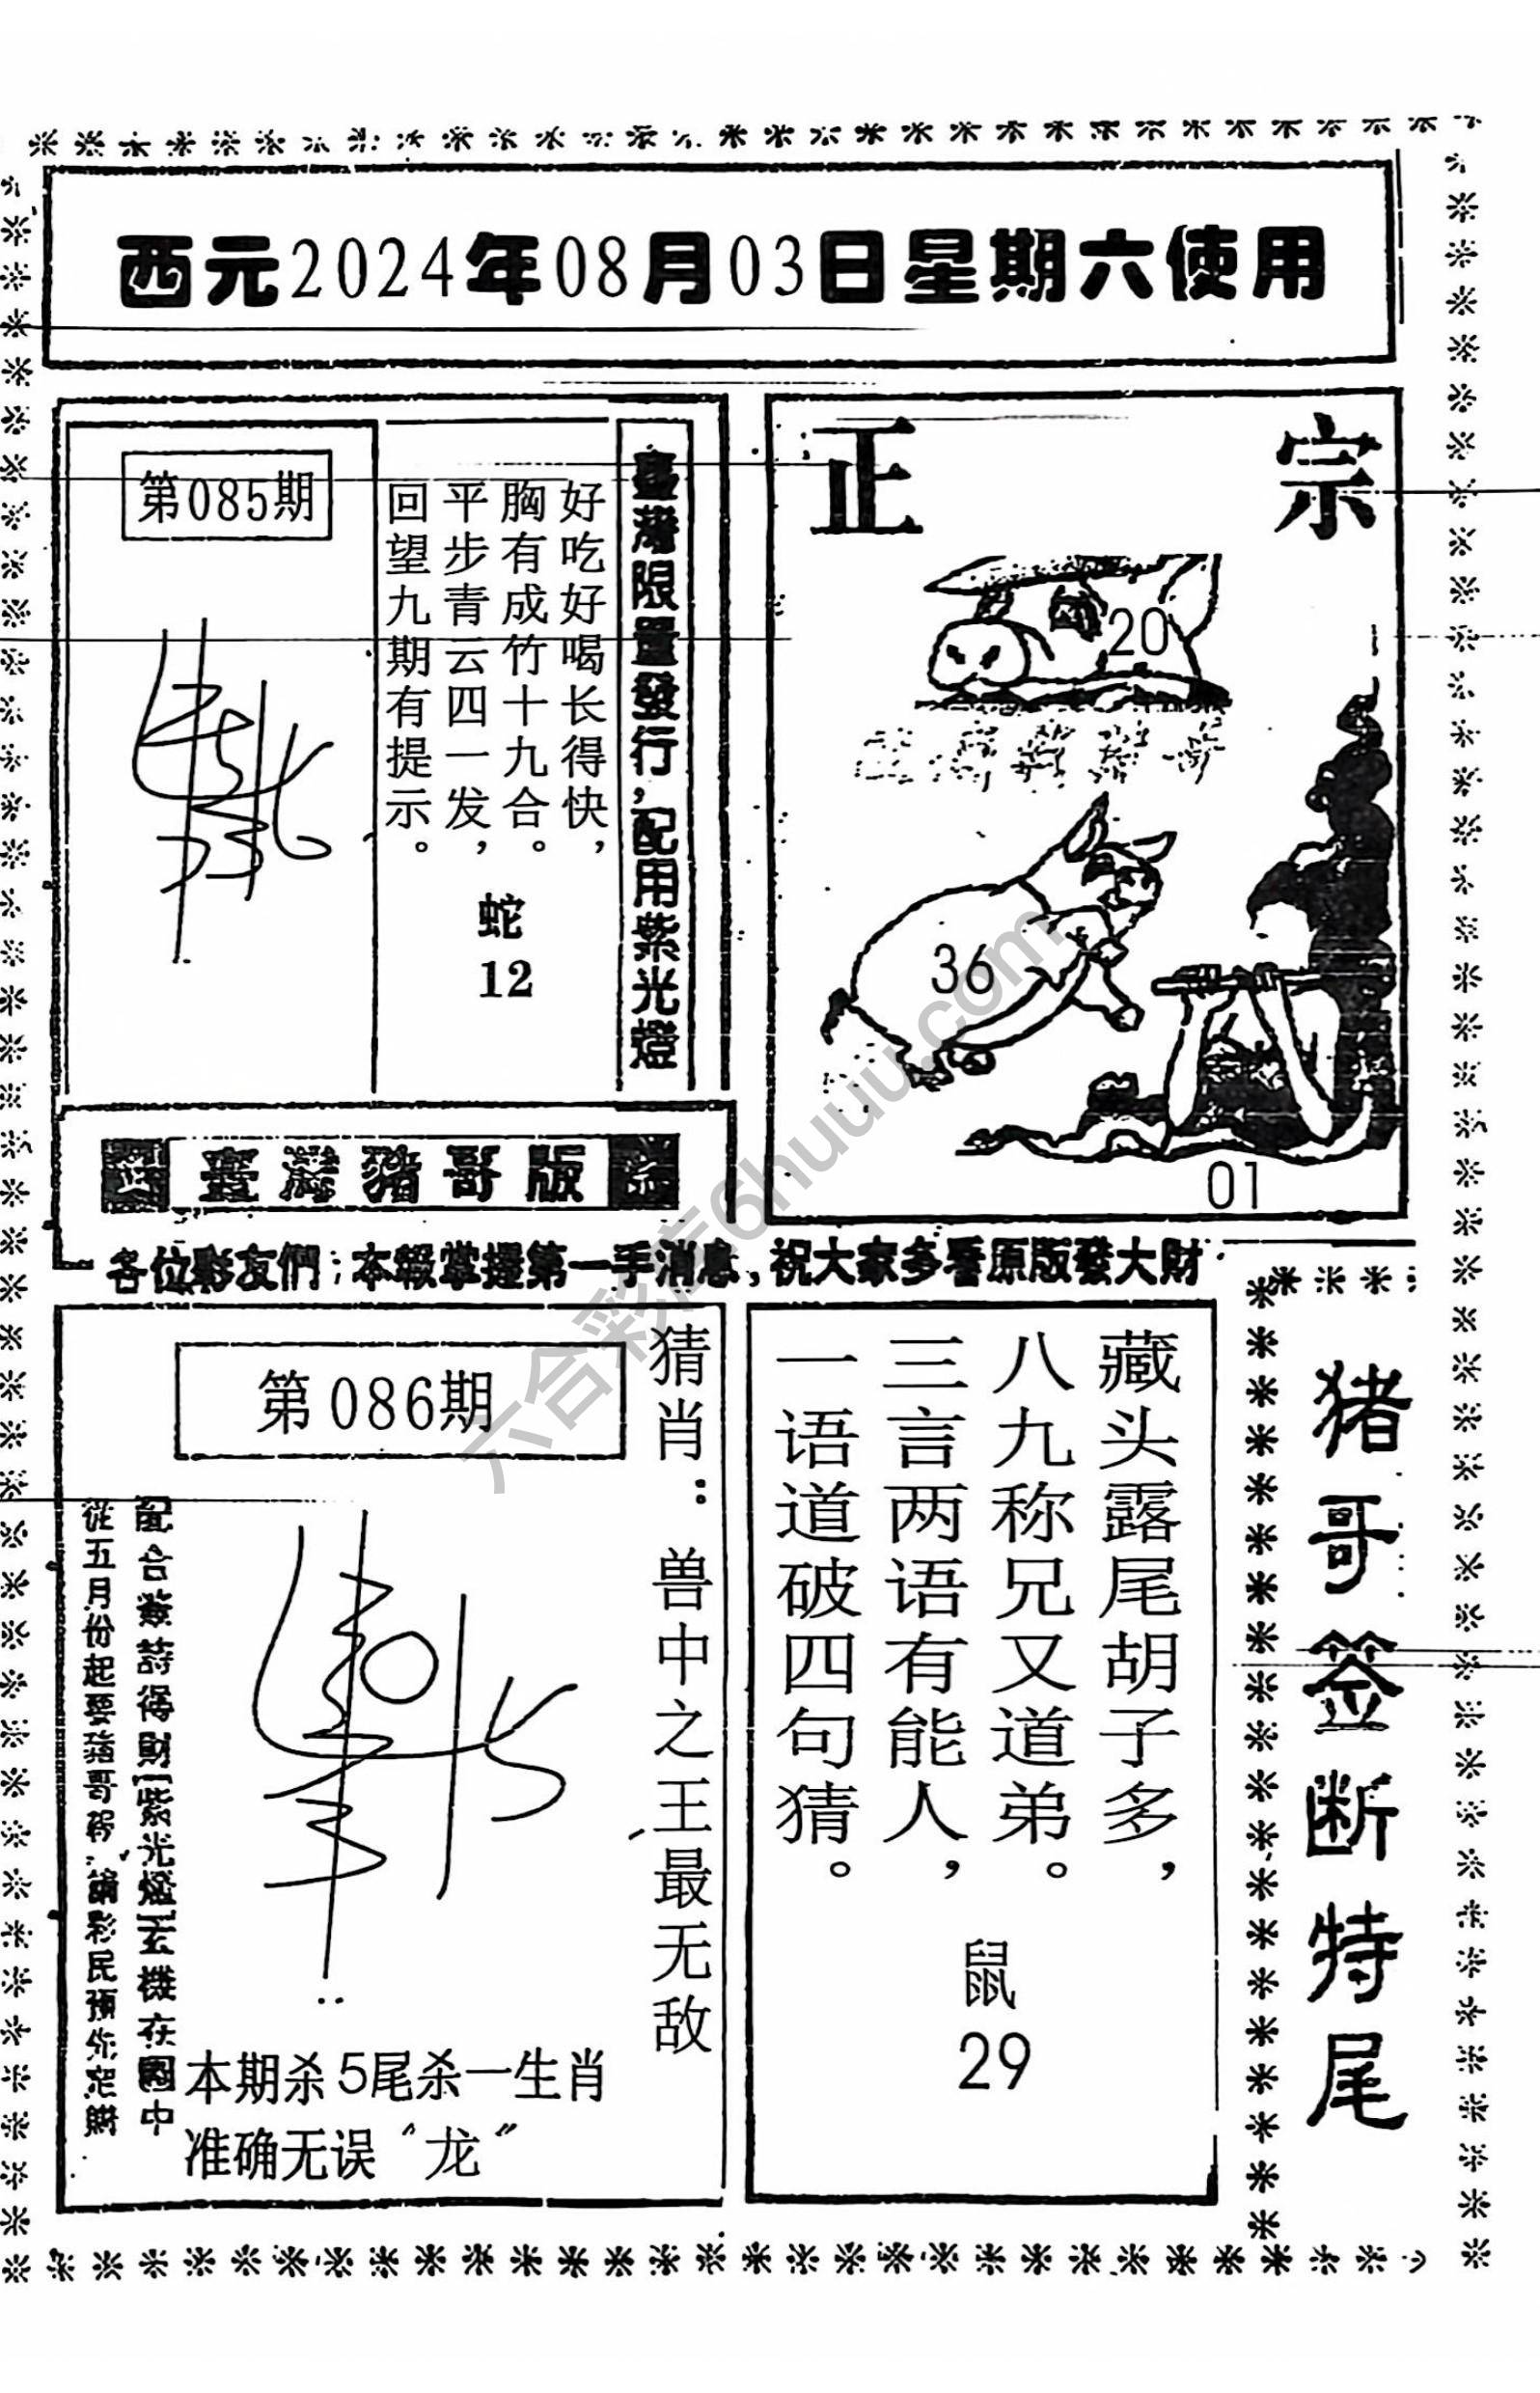 西元2024年08月03日星期六使用
臺灣限量發行,配用紫光燈
好吃好喝长得快，
胸有成竹十九合。
平步青云四一发，
回望九期有提示。
蛇
12
第085期
正宗
20
36
01
臺灣豬哥版
各位彩友們:本報掌握第一手消息,祝大家多看原版發大財
猪哥签断特尾
藏头露尾胡子多，
八九称兄又道弟。
三言两语有能人，
一语道破四句猜。
鼠
29
猜肖：兽中之王最无敌
第086期
配合簽詩得財[紫光燈]玄機在圖中
從五月份起要豬哥報,請彩民預先定購
本期杀5尾杀一生肖
准确无误“龙”
六合彩店6huuu.com